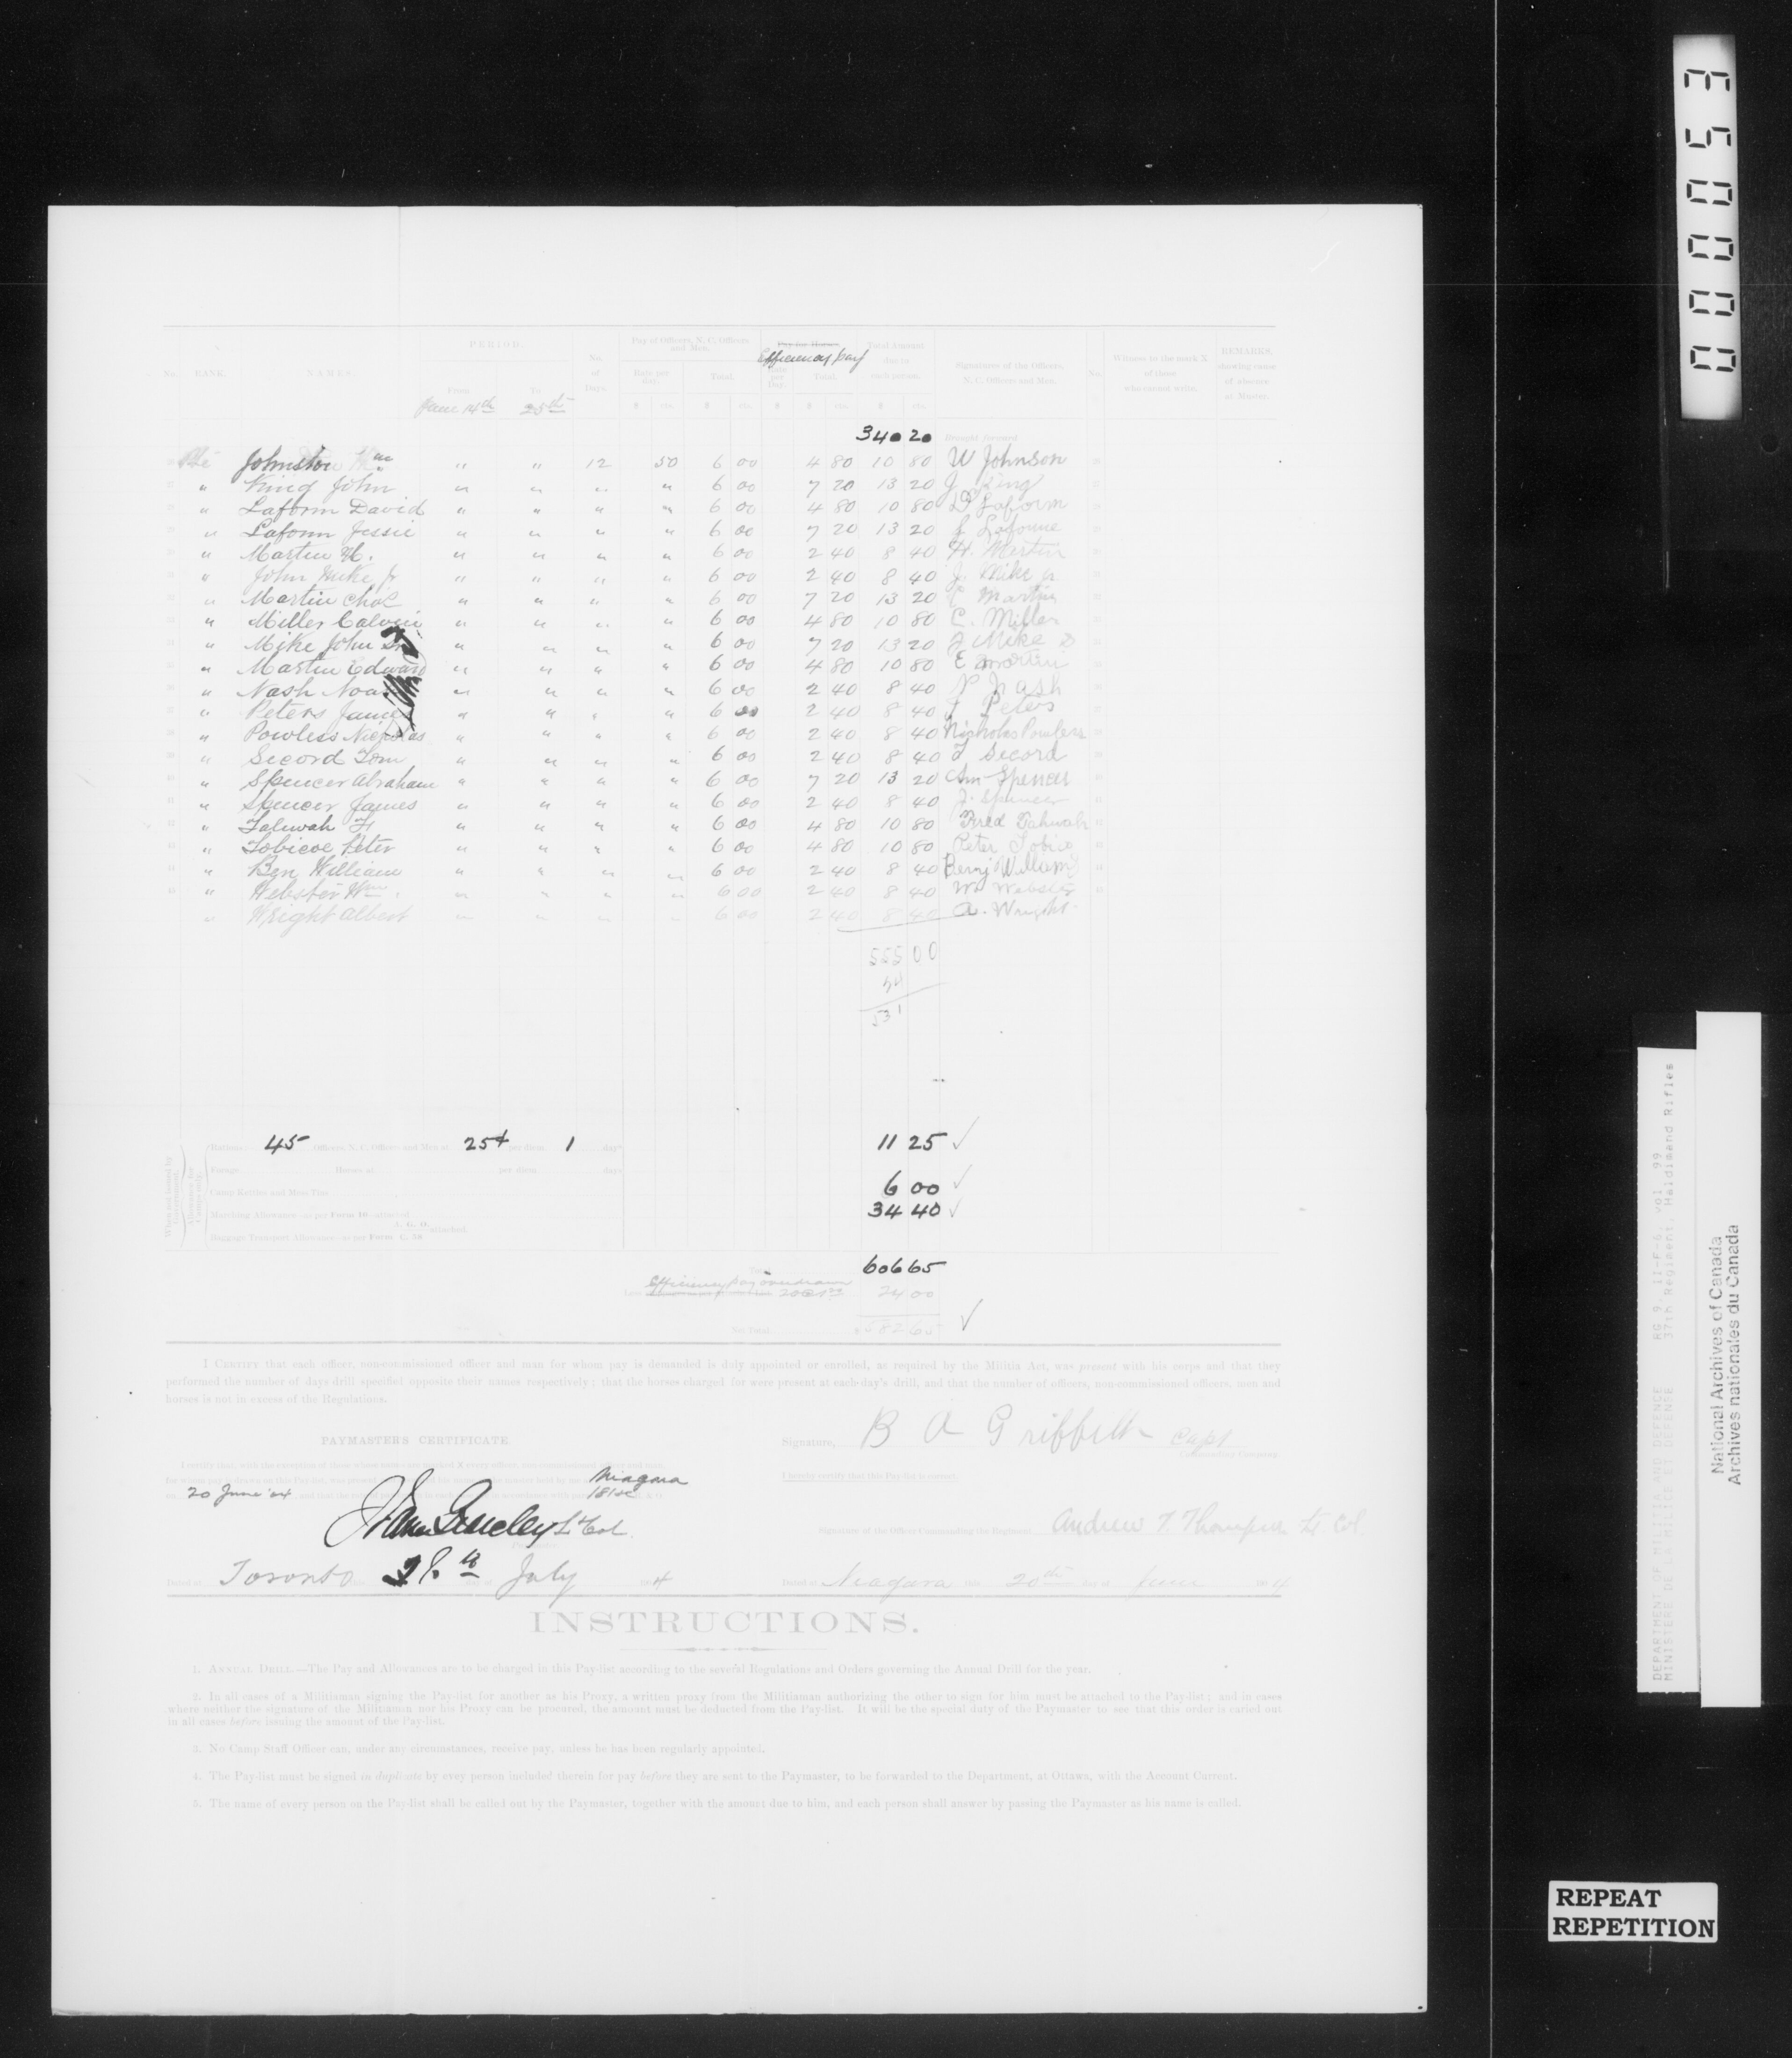 PERIOD.
Pay of Officers, N. C. Officers and Men.
Pay for Horses.
Efficiency pay
Total Amount due to each person.
No. RANK. NAMES. From To No. of Days. Rate per day. Total. Rate per Day. Total. Signatures of the Officers, N. C. Officers and Men. No. Witness to the mark X of those who cannot write. REMARKS, showing cause of absence at Muster.
June 14th 25th
$ cts. $ cts. $ $ cts. $ cts.
340 20 Brought forward
Pte Johnston Wm " " 12 50 6 00 4 80 10 80 W Johnson
" King John " " " " 6 00 7 20 13 20 J King
" Laform David " " " " 6 00 4 80 10 80 D Laform
" Laform Jessie " " " " 6 00 7 20 13 20 J Laforme
" Martin H. " " " " 6 00 2 40 8 40 H. Martin
" John Mike Jr " " " " 6 00 2 40 8 40 J. Mike Jr
" Martin Chas " " " " 6 00 7 20 13 20 C Martin
" Miller Calvin " " " " 6 00 4 80 10 80 C. Miller
" Mike John Sr " " " " 6 00 7 20 13 20 J Mike S
" Martin Edward " " " " 6 00 4 80 10 80 E Martin
" Nash Noa " " " " 6 00 2 40 8 40 N Nash
" Peters James " " " " 6 00 2 40 8 40 J Peters
" Powless Nicholas " " " " 6 00 2 40 8 40 Nicholas Powless
" Secord Tom " " " " 6 00 2 40 8 40 T Secord
" Spencer Abraham " " " " 6 00 7 20 13 20 Abm Spencer
" Spencer James " " " " 6 00 2 40 8 40 J. Spencer
" Tahwah F " " " " 6 00 4 80 10 80 Fred Tahwah
" Tobicoe Peter " " " " 6 00 4 80 10 80 Peter Tobico
" Ben William " " " " 6 00 2 40 8 40 Benj William
" Webster Wm. " " " " 6 00 2 40 8 40 Wm Webster
" Wright Albert " " " " 6 00 2 40 8 40 A. Wright
555 00
24
531
When not issued by Government. Allowance for Camps only.
Rations 45 Officers, N. C. Officers and Men at 25¢ per diem 1 days 11 25 ✓
Forage Horses at per diem days
Camp Kettles and Mess Tins 6 00 ✓
Marching Allowance as per Form 10 attached 34 40 ✓
Baggage Transport Allowance as per Form C. 10 attached.
606 65
Less Efficiency pay overdrawn 24 00
Net Total 582 65 ✓
I CERTIFY that each officer, non-commissioned officer and man for whom pay is demanded is duly appointed or enrolled, as required by the Militia Act, was present with his corps and that they
performed the number of days drill specified opposite their names respectively; that the horses charged for were present at each day's drill, and that the number of officers, non-commissioned officers, men and
horses is not in excess of the Regulations.
PAYMASTER'S CERTIFICATE
Signature, B A Griffith Capt
Commanding Company.
I certify that, with the exception of those whose names are marked X every officer, non-commissioned officer and man,
I hereby certify that this Pay-list is correct.
Niagara
20 June '04
Lt Col.
Signature of the Officer Commanding the Regiment Andrew T. Thompson Lt Col.
Dated at Toronto 28th day of July 1904
Dated at Niagara this 20th day of June 1904
INSTRUCTIONS.
1. ANNUAL DRILL.—The Pay and Allowances are to be charged in this Pay-list according to the several Regulations and Orders governing the Annual Drill for the year.
2. In all cases of a Militiaman signing the Pay-list for another as his Proxy, a written proxy from the Militiaman authorizing the other to sign for him must be attached to the Pay-list; and in cases
where neither the signature of the Militiaman nor his Proxy can be procured, the amount must be deducted from the Pay-list. It will be the special duty of the Paymaster to see that this order is caried out
in all cases before issuing the amount of the Pay-list.
3. No Camp Staff Officer can, under any circumstances, receive pay, unless he has been regularly appointed.
4. The Pay-list must be signed in duplicate by evey person included therein for pay before they are sent to the Paymaster, to be forwarded to the Department, at Ottawa, with the Account Current.
5. The name of every person on the Pay-list shall be called out by the Paymaster, together with the amount due to him, and each person shall answer by passing the Paymaster as his name is called.
000053
DEPARTMENT OF MILITIA AND DEFENCE RG 9, II-F-6, vol 99
MINISTERE DE LA MILICE ET DEFENSE 37th Regiment, Haldimand Rifles
National Archives of Canada
Archives nationales du Canada
REPEAT
REPETITION